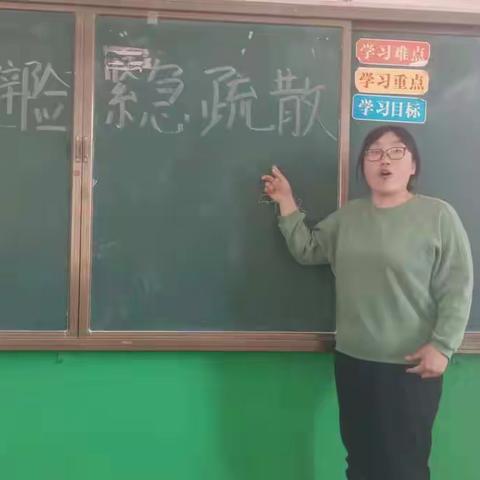 避险 紧急疏散
学习难点
学习重点
学习目标